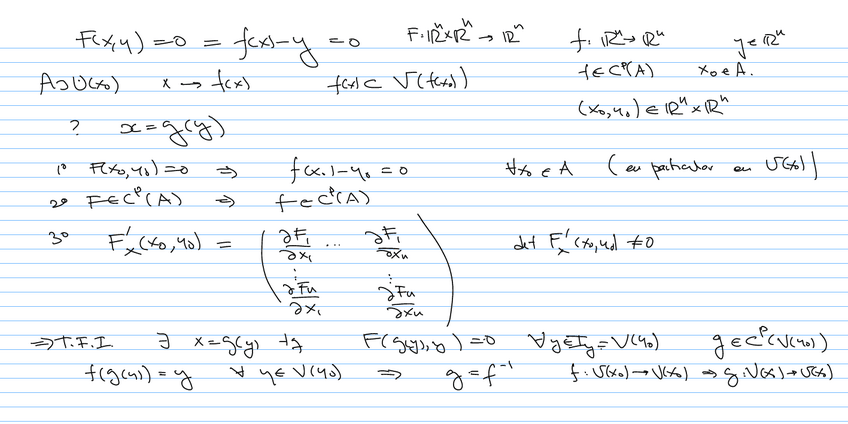 F(x,y) = 0 = f(x) - y = 0   F: ℝⁿ×ℝⁿ → ℝⁿ   f: ℝⁿ → ℝⁿ   y ∈ ℝⁿ
A ⊃ U(x₀)   x → f(x)   f(x) ⊂ V(f(x₀))   f ∈ Cᵖ(A)   x₀ ∈ A.
(x₀,y₀) ∈ ℝⁿ×ℝⁿ
?   x = g(y)
1º   F(x₀,y₀) = 0   ⇒   f(x₀) - y₀ = 0   ∀x₀ ∈ A   (en particular en U(x₀))
2º   F ∈ Cᵖ(A)   ⇒   f ∈ Cᵖ(A)
3º   F'ₓ(x₀,y₀) = ( ∂F₁/∂x₁ ... ∂F₁/∂xₙ ⋮ ⋮ ∂Fₙ/∂x₁ ∂Fₙ/∂xₙ )   det F'ₓ(x₀,y₀) ≠ 0
⇒ T.F.I.   ∃   x = g(y)   tq   F(g(y),y) = 0   ∀y ∈ I_y = V(y₀)   g ∈ Cᵖ(V(y₀))
f(g(y)) = y   ∀ y ∈ V(y₀)   ⇒   g = f⁻¹   f: U(x₀) → V(x₀) ⇒ g: V(x₀) → U(x₀)